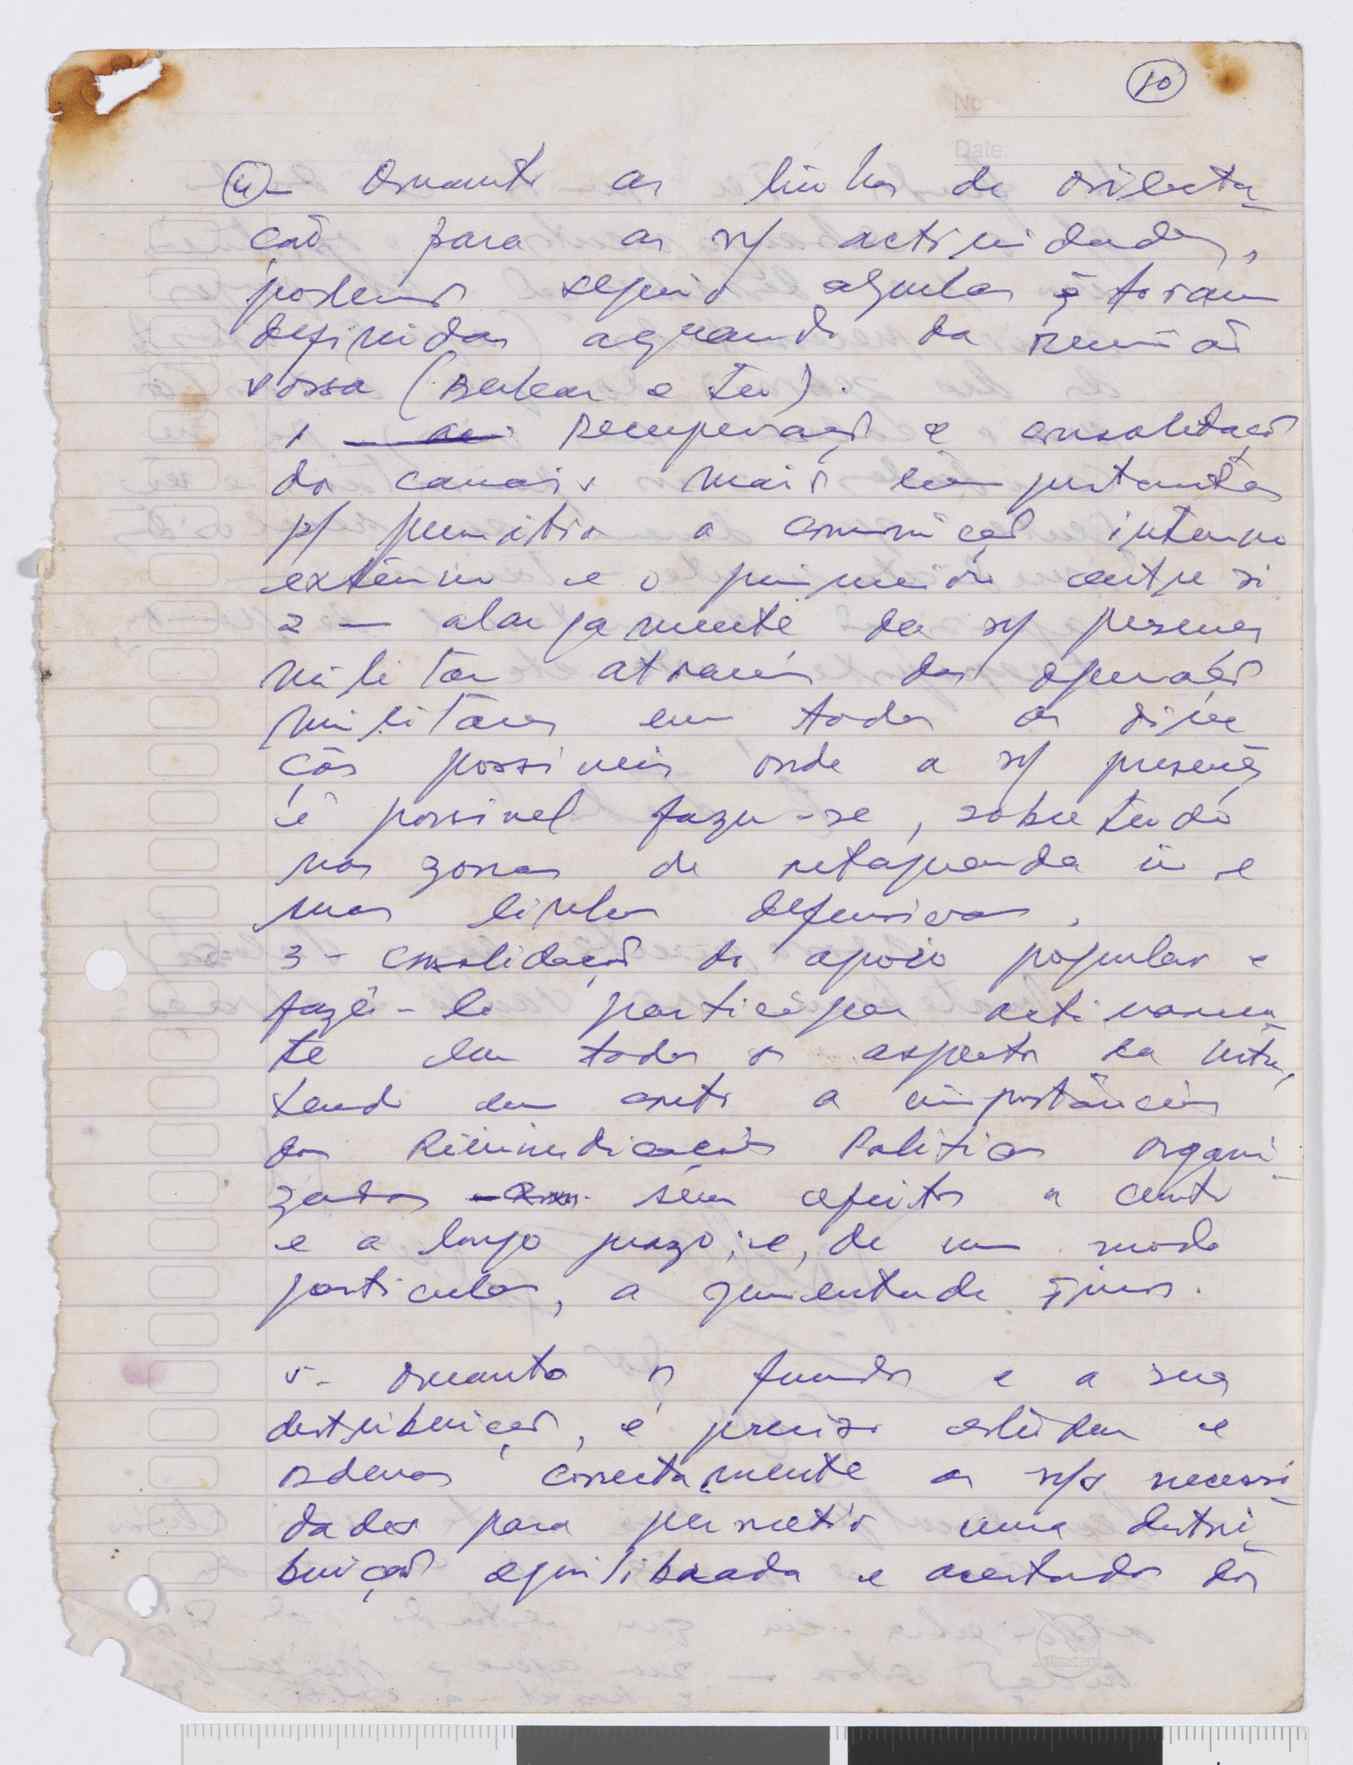 10
No
Date
4 - Quanto as linhas de orienta-
ção para as n/ actividades,
podemos seguir aquelas q̃ foram
definidas aquando da reunião
vossa (Berkar e teu).
1 Recuperação e consolidação
dos canais mais importantes
p/ permitir a comunicação interno
externo e o primeiro entre si
2 - alargamento da n/ presença
militar através das operações
militares em todas as direc
ções possiveis onde a n/ presença
é possivel fazer-se, sobretudo
nas zonas de retaguarda in e
nas linhas defensivas.
3 - Consolidação do apoio popular e
fazê-lo participar activamen
te em todos os aspectos da luta,
tendo em conta a importância
das Reivindicações Politicas organi-
zadas sem efeitos a curto
e a longo prazo; e, de um modo
particular, a juventude Timor.
5 - Quanto os fundos e a sua
distribuição, é preciso estudar e
ordenar correctamente as n/s necessi-
dades para permitir uma distri-
buição equilibrada e acertada dos